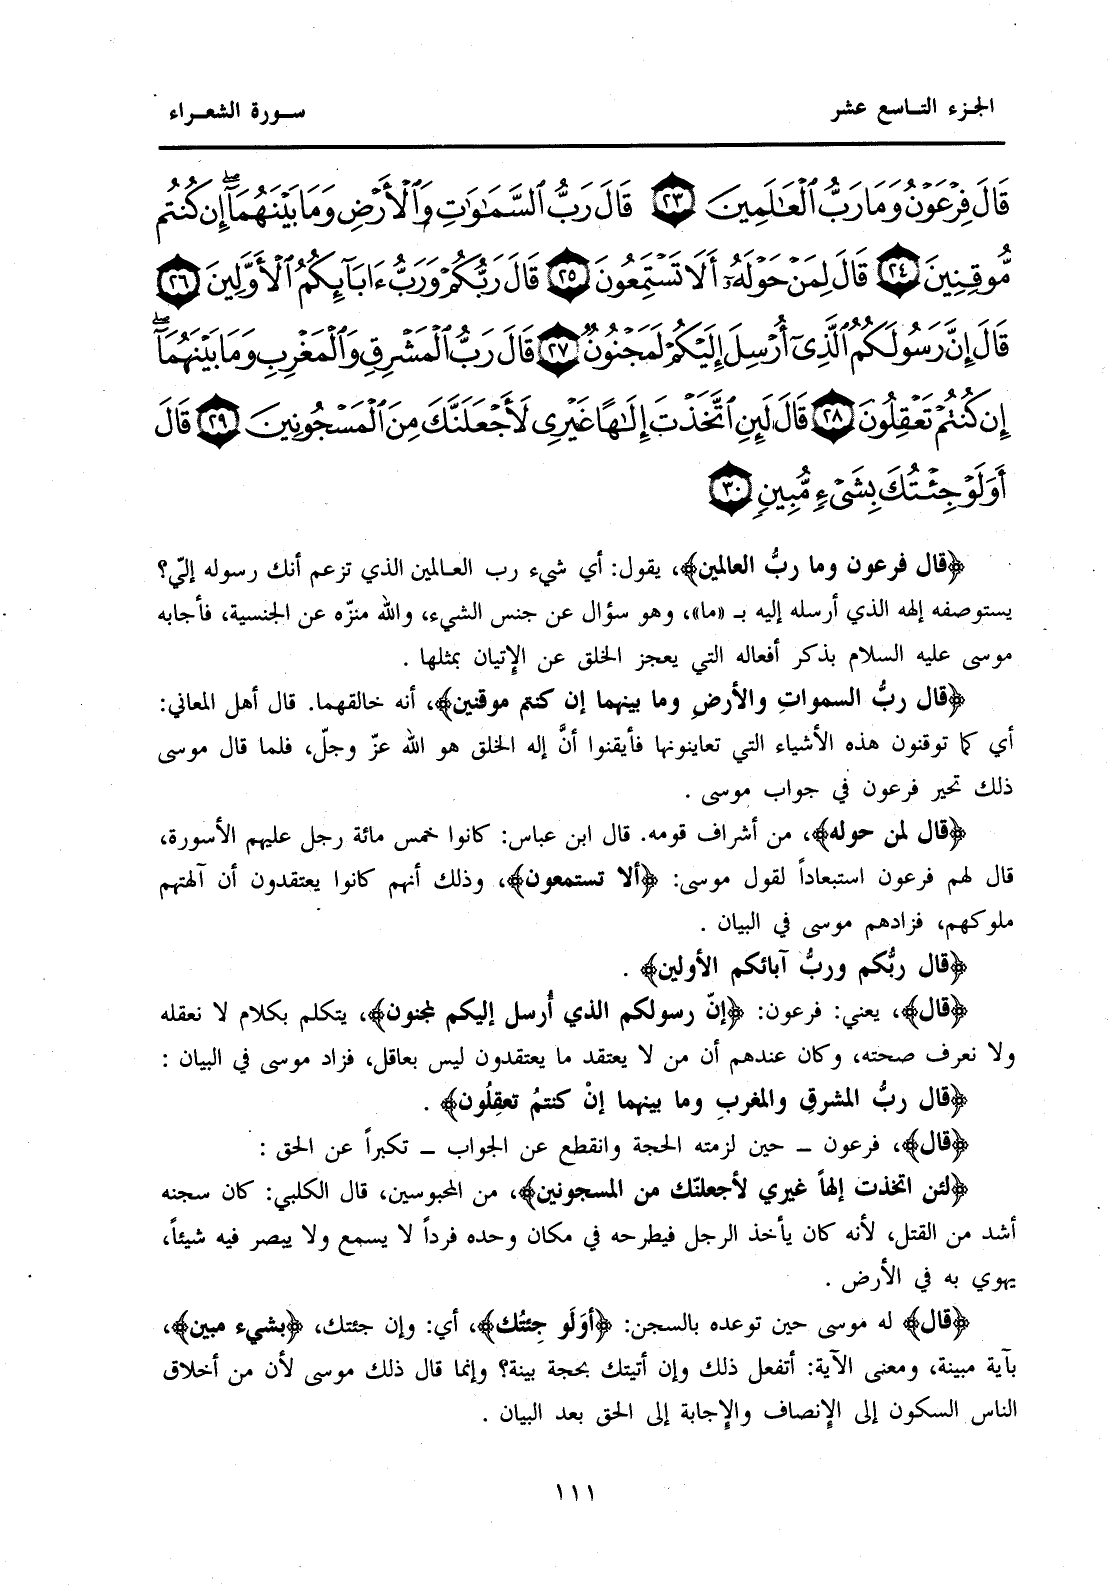 الجزء التاسع عشر
سورة الشعراء
قَالَ فِرْعَوْنُ وَمَا رَبُّ ٱلْعَٰلَمِينَ ٢٣ قَالَ رَبُّ ٱلسَّمَٰوَٰتِ وَٱلْأَرْضِ وَمَا بَيْنَهُمَآ ۖ إِن كُنتُم
مُّوقِنِينَ ٢٤ قَالَ لِمَنْ حَوْلَهُۥٓ أَلَا تَسْتَمِعُونَ ٢٥ قَالَ رَبُّكُمْ وَرَبُّ ءَابَآئِكُمُ ٱلْأَوَّلِينَ ٢٦
قَالَ إِنَّ رَسُولَكُمُ ٱلَّذِىٓ أُرْسِلَ إِلَيْكُمْ لَمَجْنُونٌ ٢٧ قَالَ رَبُّ ٱلْمَشْرِقِ وَٱلْمَغْرِبِ وَمَا بَيْنَهُمَآ ۖ
إِن كُنتُمْ تَعْقِلُونَ ٢٨ قَالَ لَئِنِ ٱتَّخَذْتَ إِلَٰهًا غَيْرِى لَأَجْعَلَنَّكَ مِنَ ٱلْمَسْجُونِينَ ٢٩ قَالَ
أَوَلَوْ جِئْتُكَ بِشَىْءٍ مُّبِينٍ ٣٠
﴿قال فرعون وما ربُّ العالمين﴾، يقول: أي شيء رب العالمين الذي تزعم أنك رسوله إليّ؟
يستوصفه إلهه الذي أرسله إليه بـ «ما»، وهو سؤال عن جنس الشيء، والله منزّه عن الجنسية، فأجابه
موسى عليه السلام بذكر أفعاله التي يعجز الخلق عن الإتيان بمثلها .
﴿قال ربُّ السموات والأرضِ وما بينهما إن كنتم موقنين﴾، أنه خالقهما. قال أهل المعاني:
أي كما توقنون هذه الأشياء التي تعاينونها فأيقنوا أنَّ إله الخلق هو الله عزّ وجلّ، فلما قال موسى
ذلك تحير فرعون في جواب موسى .
﴿قال لمن حوله﴾، من أشراف قومه. قال ابن عباس: كانوا خمس مائة رجل عليهم الأسورة،
قال لهم فرعون استبعاداً لقول موسى: ﴿ألا تستمعون﴾، وذلك أنهم كانوا يعتقدون أن آلهتهم
ملوكهم، فزادهم موسى في البيان .
﴿قال ربُّكم وربُّ آبائكم الأولين﴾ .
﴿قال﴾، يعني: فرعون: ﴿إنّ رسولكم الذي أُرسل إليكم لمجنون﴾، يتكلم بكلام لا نعقله
ولا نعرف صحته، وكان عندهم أن من لا يعتقد ما يعتقدون ليس بعاقل، فزاد موسى في البيان :
﴿قال ربُّ المشرقِ والمغربِ وما بينهما إنْ كنتمُ تعقِلُون﴾ .
﴿قال﴾، فرعون ــ حين لزمته الحجة وانقطع عن الجواب ــ تكبراً عن الحق :
﴿لئن اتخذت إلهاً غيري لأجعلنّك من المسجونين﴾، من المحبوسين، قال الكلبي: كان سجنه
أشد من القتل، لأنه كان يأخذ الرجل فيطرحه في مكان وحده فرداً لا يسمع ولا يبصر فيه شيئاً،
يهوي به في الأرض .
﴿قال﴾ له موسى حين توعده بالسجن: ﴿أوَلَو جِئتُك﴾، أي: وإن جئتك، ﴿بشيء مبين﴾،
بآية مبينة، ومعنى الآية: أتفعل ذلك وإن أتيتك بحجة بينة؟ وإنما قال ذلك موسى لأن من أخلاق
الناس السكون إلى الإنصاف والإجابة إلى الحق بعد البيان .
١١١